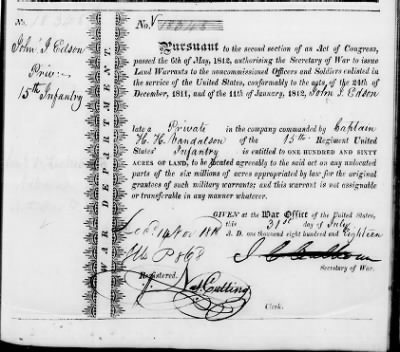 No.
John J Edson
Priv
15th Infantry
WAR DEPARTMENT.
No.
Pursuant to the second section of an Act of Congress,
passed the 6th of May, 1812, authorising the Secretary of War to issue
Land Warrants to the noncommissioned Officers and Soldiers enlisted in
the service of the United States, conformably to acts, of the 24th of
December, 1811, and of the 11th of January, 1812, John J. Edson
late a Private in the company commanded by Captain
H. H. Vandalson of the 15th Regiment United
States' Infantry is entitled to ONE HUNDRED AND SIXTY
ACRES OF LAND, to be located agreeably to the said act on any unlocated
parts of the six millions of acres appropriated by law for the original
grantees of such military warrants; and this warrant is not assignable
or transferable in any manner whatever.
GIVEN at the War Office of the United States,
this 31st day of July
A. D. one thousand eight hundred and eighteen
J C Calhoun
Secretary of War.
Registered.
Cutting
Clerk.